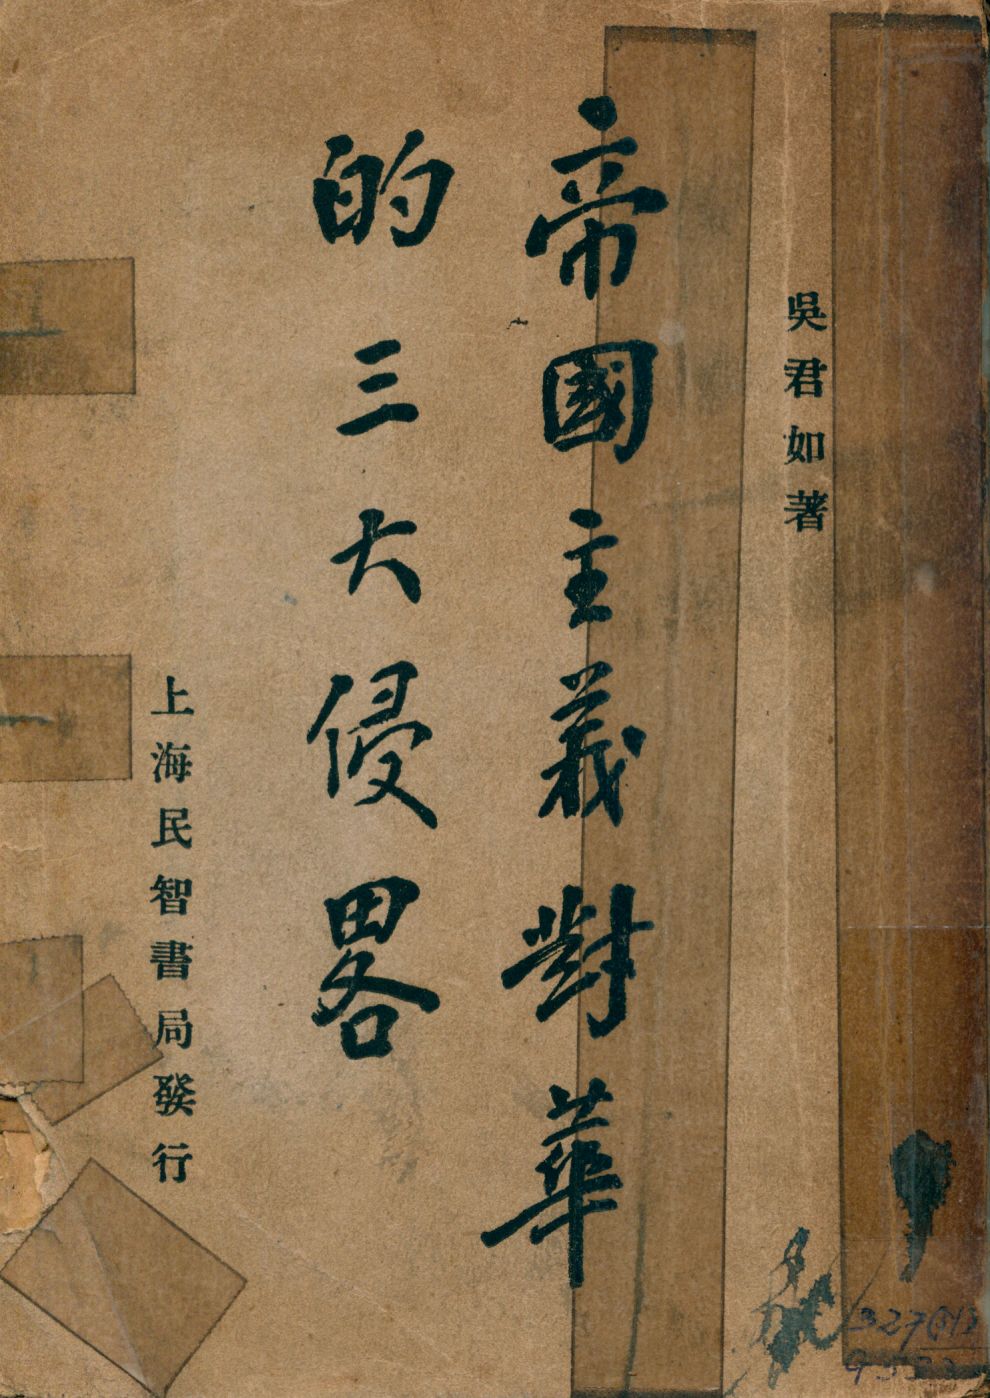 吳君如著
帝國主義對華
的三大侵畧
上海民智書局發行
327(51)